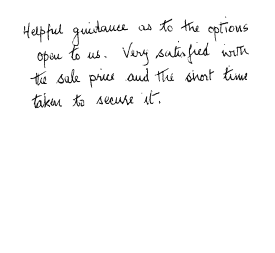 Helpful guidance as to the options
open to us. Very satisfied with
the sale price and the short time
taken to secure it.